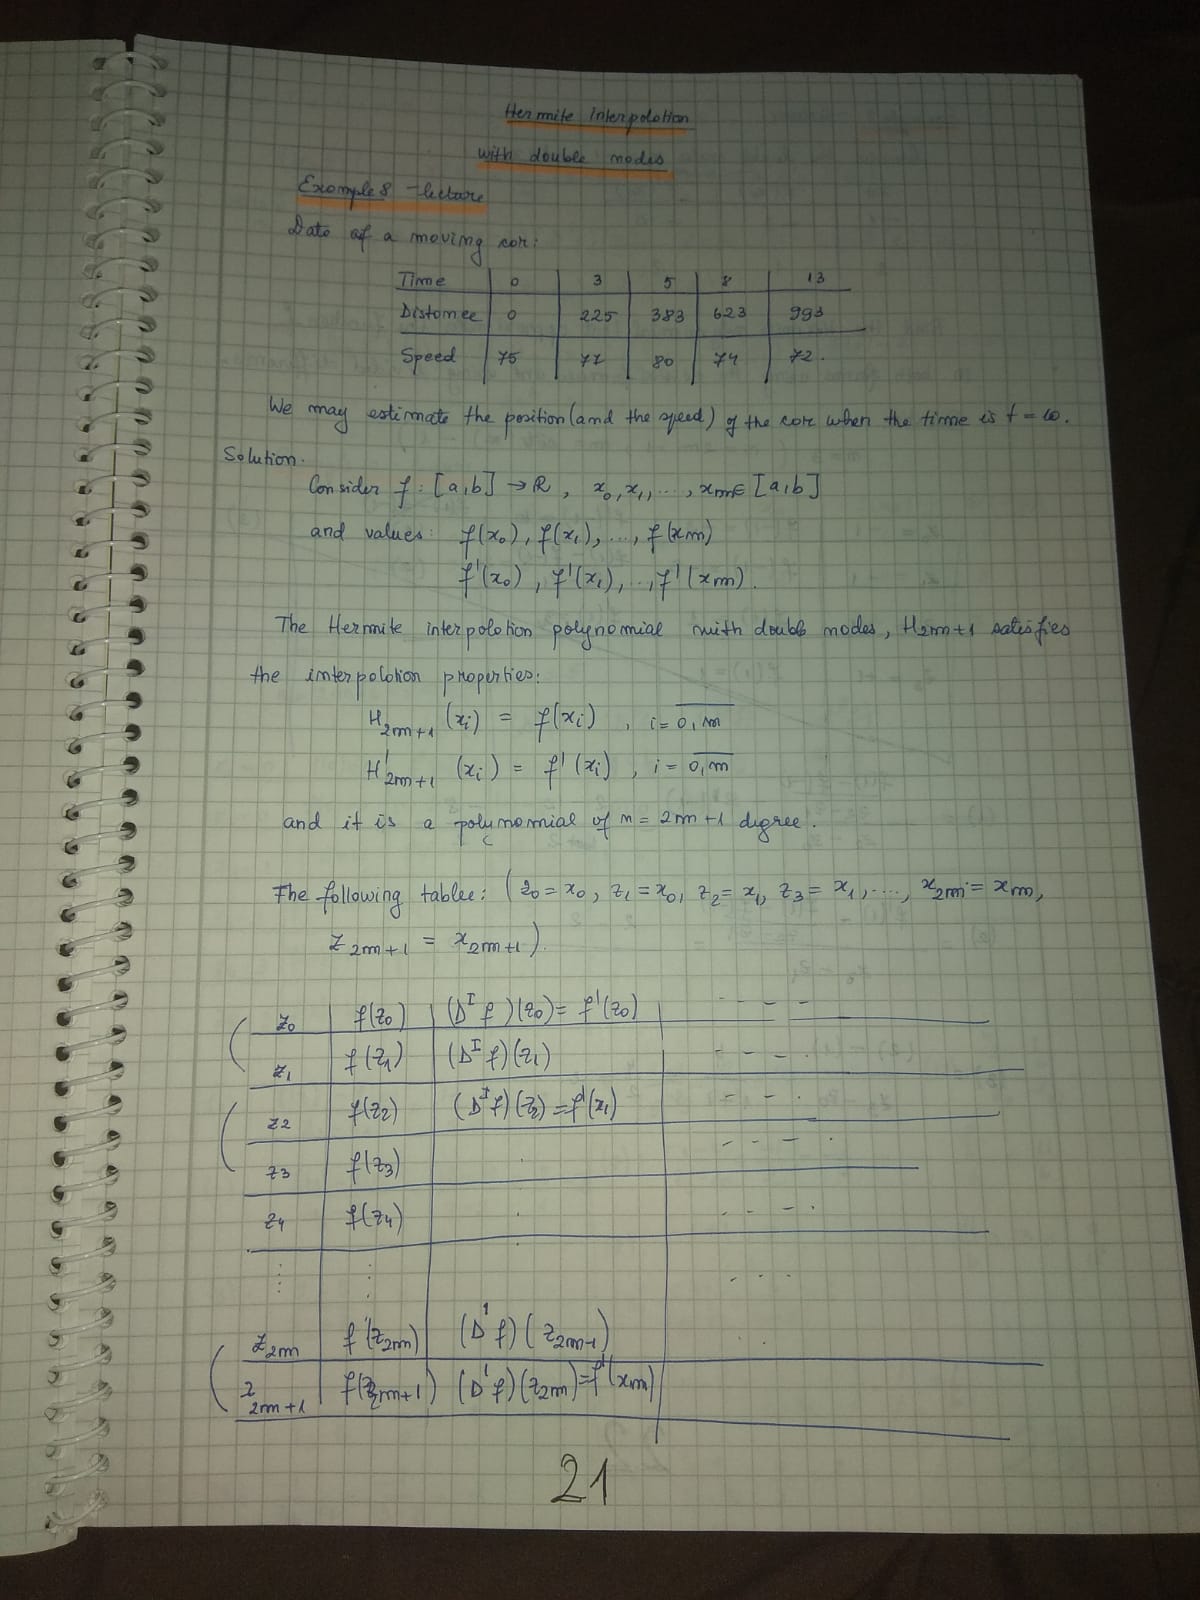 Hermite interpolation
with double nodes
Example 8 - lecture
Data of a moving car:
Time 0 3 5 8 13
Distance 0 225 383 623 993
Speed 75 77 80 74 72.
We may estimate the position (and the speed) of the car when the time is t = 10.
Solution.
Consider f: [a,b] → R, x₀, x₁, ..., xm ∈ [a,b]
and values: f(x₀), f(x₁), ..., f(xm)
f'(x₀), f'(x₁), ..., f'(xm).
The Hermite interpolation polynomial with double nodes, H2m+1 satisfies
the interpolation properties:
H2m+1 (xi) = f(xi), i = 0,m
H'2m+1 (xi) = f'(xi), i = 0,m
and it is a polynomial of n = 2m+1 degree.
The following table: (z₀ = x₀, z₁ = x₀, z₂ = x₁, z₃ = x₁, ..., x2m = xm,
z2m+1 = x2m+1).
z₀ f(z₀) (D^I f)(z₀) = f'(z₀) - - -
z₁ f(z₁) (D^I f)(z₁) - - - .
z₂ f(z₂) (D^I f)(z₂) = f'(x₁) - - .
z₃ f(z₃) . - - - .
z₄ f(z₄) . - - - .
⋮ ⋮ . - . . .
z2m f(z2m) (D^1 f)(z2m-1) .
z2m+1 f(z2m+1) (D^1 f)(z2m) = f'(xm)
21